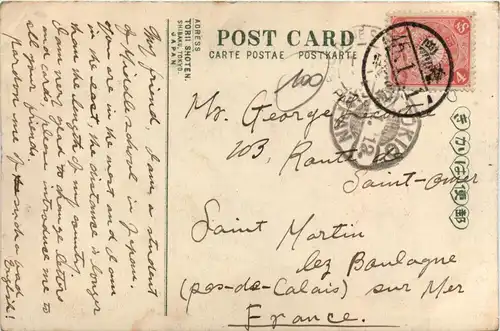 ADRESS
TORII SHOTEN.
SHIBAKU, TOKYO.
JAPAN.
POST CARD
CARTE POSTAE POSTKARTE
100
My friend, I am a student
of Middle school in Japan,
are in the most and I am
in the east, the distance is longer
than the length of my country.
I am very glad to change letters
and cards, please introduce me to
all your friends.
pardon me of
English!
Mr. George
103, Route de
Saint-omer
Saint Martin
lez Boulogne
(pas-de-Calais) sur Mer
France.
きかは便郵